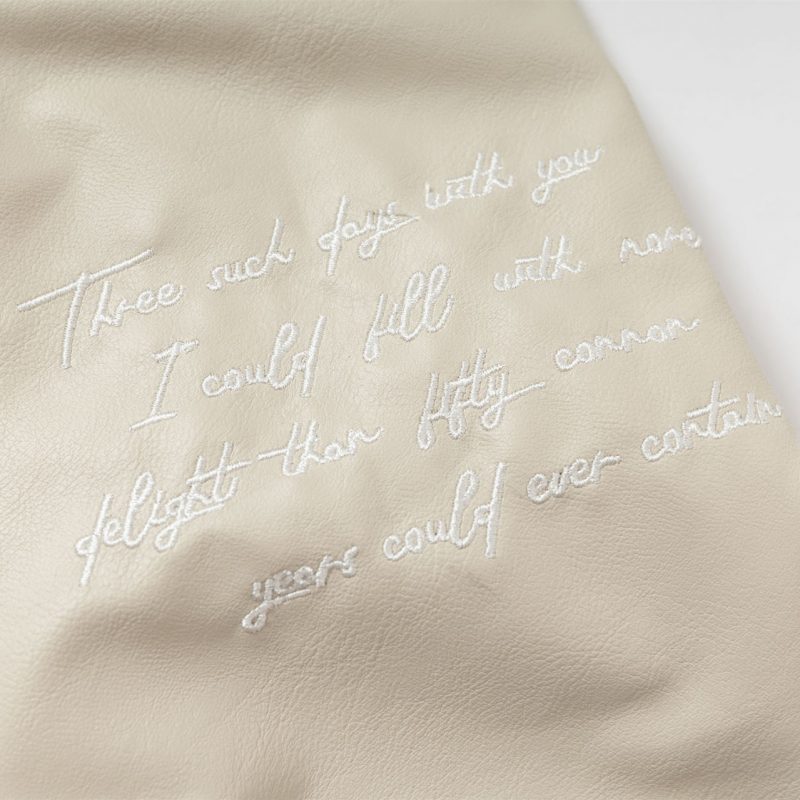 Three such days with you
I could fill with more
delight than fifty common
years could ever contain